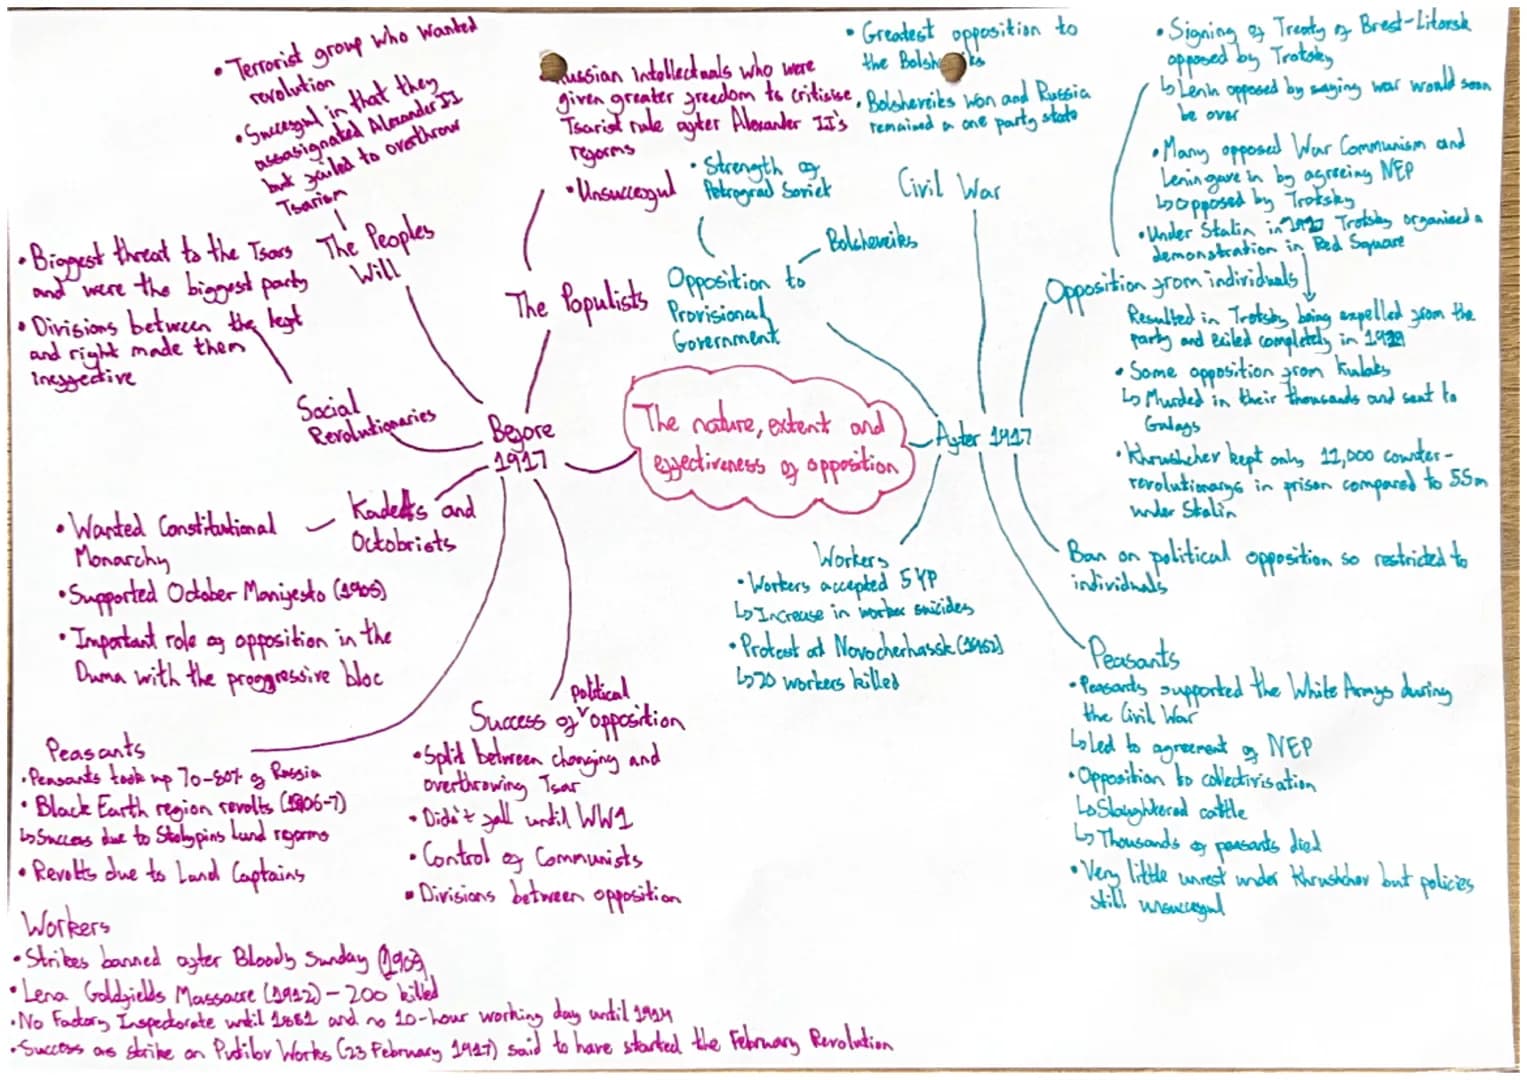 The nature, extent and
effectiveness of opposition
Before
1917
The Peoples
Will
• Terrorist group who wanted
revolution
• Successful in that they
assasignated Alexander II
but failed to overthrow
Tsarism
The Populists
Russian intellectuals who were
given greater freedom to critisise
Tsarist rule after Alexander II's
reforms
• Unsuccessful
Social
Revolutionaries
• Biggest threat to the Tsars
and were the biggest party
• Divisions between the left
and right made them
ineffective
Kadets and
Octobrists
• Wanted Constitutional
Monarchy
• Supported October Manifesto (1905)
• Important role of opposition in the
Duma with the proggressive bloc
Peasants
• Peasants took up 70-80% of Russia
• Black Earth region revolts (1906-7)
↳ Success due to Stolypins land reforms
• Revolts due to Land Captains
Success of political opposition
• Split between changing and
overthrowing Tsar
• Didn't fall until WW1
• Control of Communists
• Divisions between opposition
Workers
• Strikes banned after Bloody Sunday (1905)
• Lena Goldfields Massacre (1912) – 200 killed
• No Factory Inspectorate until 1882 and no 10-hour working day until 1914
• Success as strike on Putilov Works (23 February 1917) said to have started the February Revolution
After 1917
Opposition to
Provisional
Government
• Strength of
Petrograd Soviet
Bolsheveiks
Civil War
• Greatest opposition to
the Bolsheveiks
• Bolsheveiks won and Russia
remained a one party state
Opposition from individuals
• Signing of Treaty of Brest-Litovsk
opposed by Trotsky
↳ Lenin opposed by saying war would soon
be over
• Many opposed War Communism and
Lenin gave in by agreeing NEP
↳ Opposed by Trotsky
• Under Stalin in 1927 Trotsky organised a
demonstration in Red Square
Resulted in Trotsky being expelled from the
party and exiled completely in 1929
• Some opposition from Kulaks
↳ Murded in their thousands and sent to
Gulags
• Khrushchev kept only 11,000 counter-
revolutionarys in prison compared to 5.5m
under Stalin
Ban on political opposition so restricted to
individuals
Workers
• Workers accepted 5YP
↳ Increase in worker suicides
• Protest at Novocherhassk (1962)
↳ 70 workers killed
Peasants
• Peasants supported the White Armys during
the Civil War
↳ Led to agreement of NEP
• Opposition to collectivisation
↳ Slaughtered cattle
↳ Thousands of peasants died
• Very little unrest under Khrushchev but policies
still unsuccessful